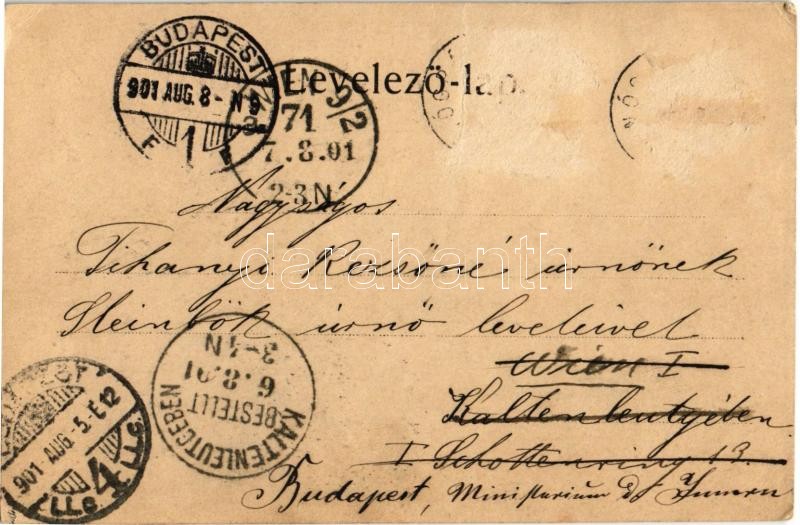 BUDAPEST
901 AUG. 8 - N 9
F 1 F
Levelező-lap.
9/2
71
7.8.01
2-3 N
Nagyságos
Tihanyi Rezsőné úrnőnek
Steinbök úrnő leveleivel
Wien I
Kaltenleutgeben
I Schottenring 13.
Budapest, Ministerium d. Innern
KALTENLEUTGEBEN
BESTELLT
6.8.01
3-4 N
901 AUG. 5 - E 12
4
darabanth